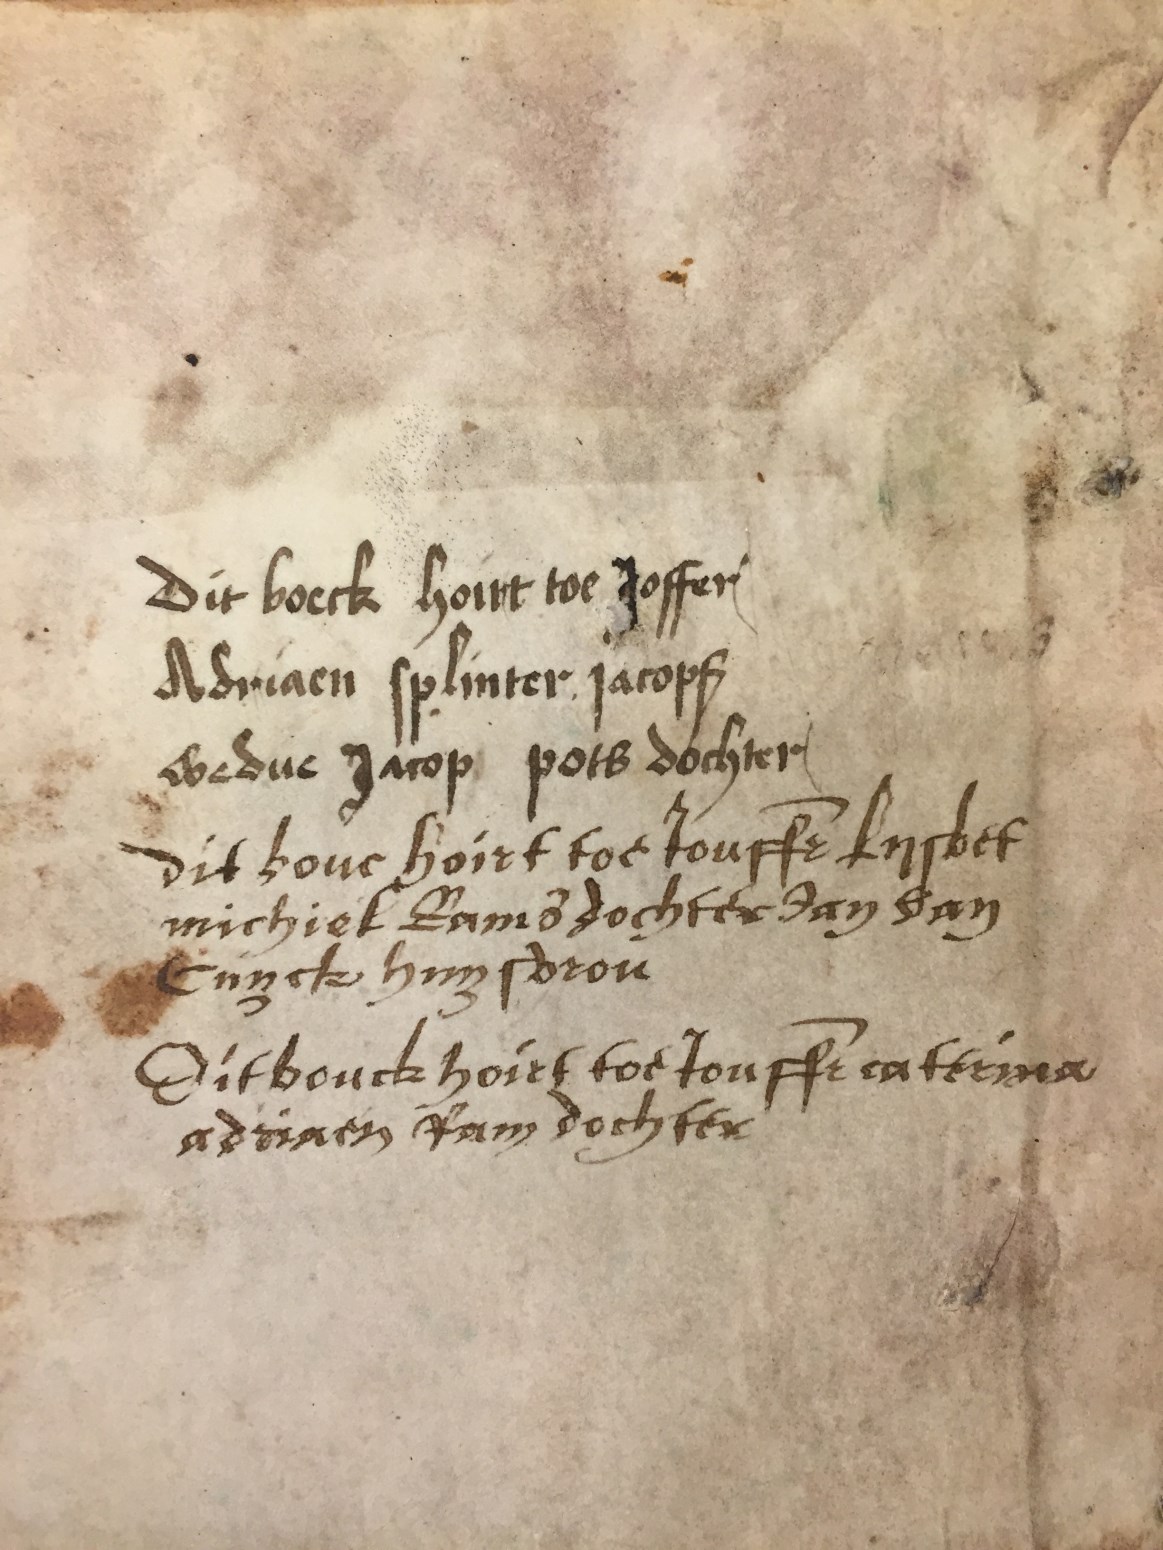 Dit boeck hoirt toe Joffer
Adriaen splinter jacopß
wedue Jacop pots dochter
dit bouc hoirt toe Jouffr Lijsbet
michiel Rams dochter Jan van
Cuyck huysvrou
Dit bouck hoirt toe Jouffr caterina
adriaen Ram dochter